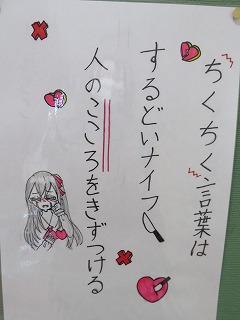 ちくちく言葉は
するどいナイフ
人のこころをきずつける